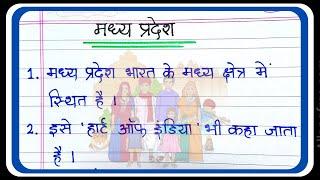 मध्य प्रदेश
1. मध्य प्रदेश भारत के मध्य क्षेत्र में
स्थित है ।
2. इसे 'हार्ट ऑफ़ इंडिया' भी कहा जाता
है ।